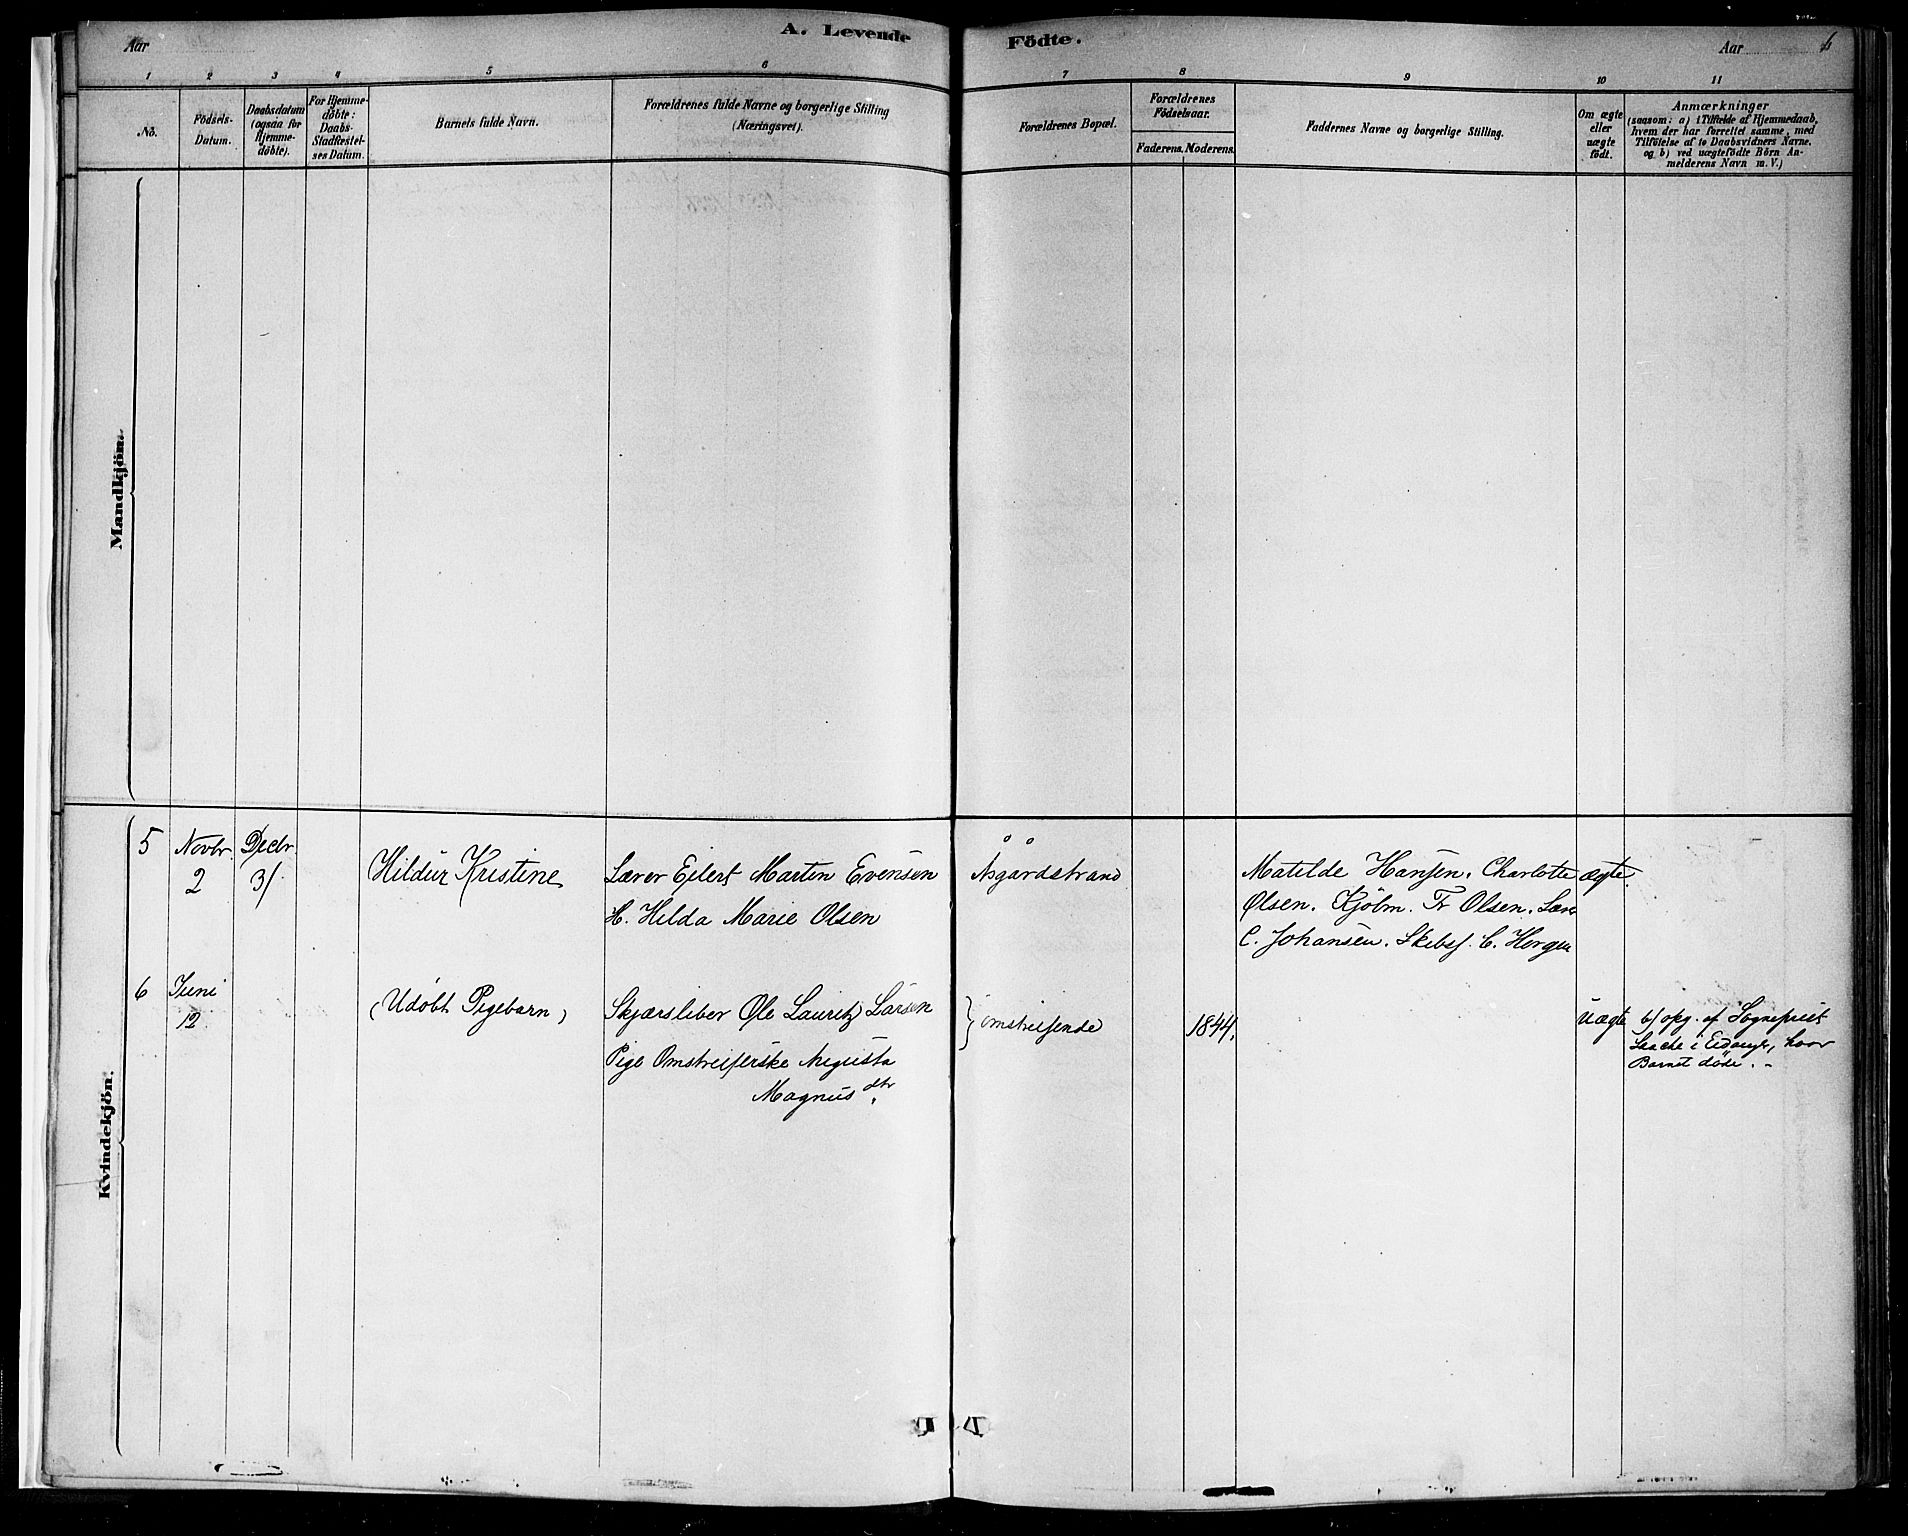 A. Levende Födte.
Aar
Aar
6
1 2 3 4 5 6 7 8 9 10 11
No.
Födsels-
Datum.
Daabsdatum
(ogsaa for
Hjemme-
döbte).
For Hjemme-
döbte:
Daabs-
Stadfæstel-
ses Datum.
Barnets fulde Navn.
Forældrenes fulde Navne og borgerlige Stilling
(Næringsvei).
Forældrenes Bopæl.
Forældrenes
Födselsaar.
Faderens. Moderens.
Faddernes Navne og borgerlige Stilling.
Om ægte
eller
uægte
födt.
Anmærkninger
(saasom: a) i Tilfælde af Hjemmedaab,
hvem der har forrettet samme, med
Tilföielse af to Daabsvidners Navne,
og b) ved uægtefödte Börn An-
melderens Navn m. V.)
Mandkjön.
Kvindekjön.
5
Novbr
2
Decbr
31
Hildur Kristine
Lærer Eilert Martin Evensen
H. Hilda Marie Olsen
Åsgårdstrand
Matilde Hansen. Charlotte
Olsen. Kjøbm. Fr Olsen. Lærer
C. Johansen. Skibsf. C. Horgen
ægte.
6
Juni
12
(Udøbt Pigebarn)
Skjærsliber Ole Lauritz Larsen
Pige Omstreiferske Augusta
Magnusdtr.
} omstreifende
1844.
Uægte
b) opg. af Sognepræst
i Eidanger, hvor
Barnet døde. -